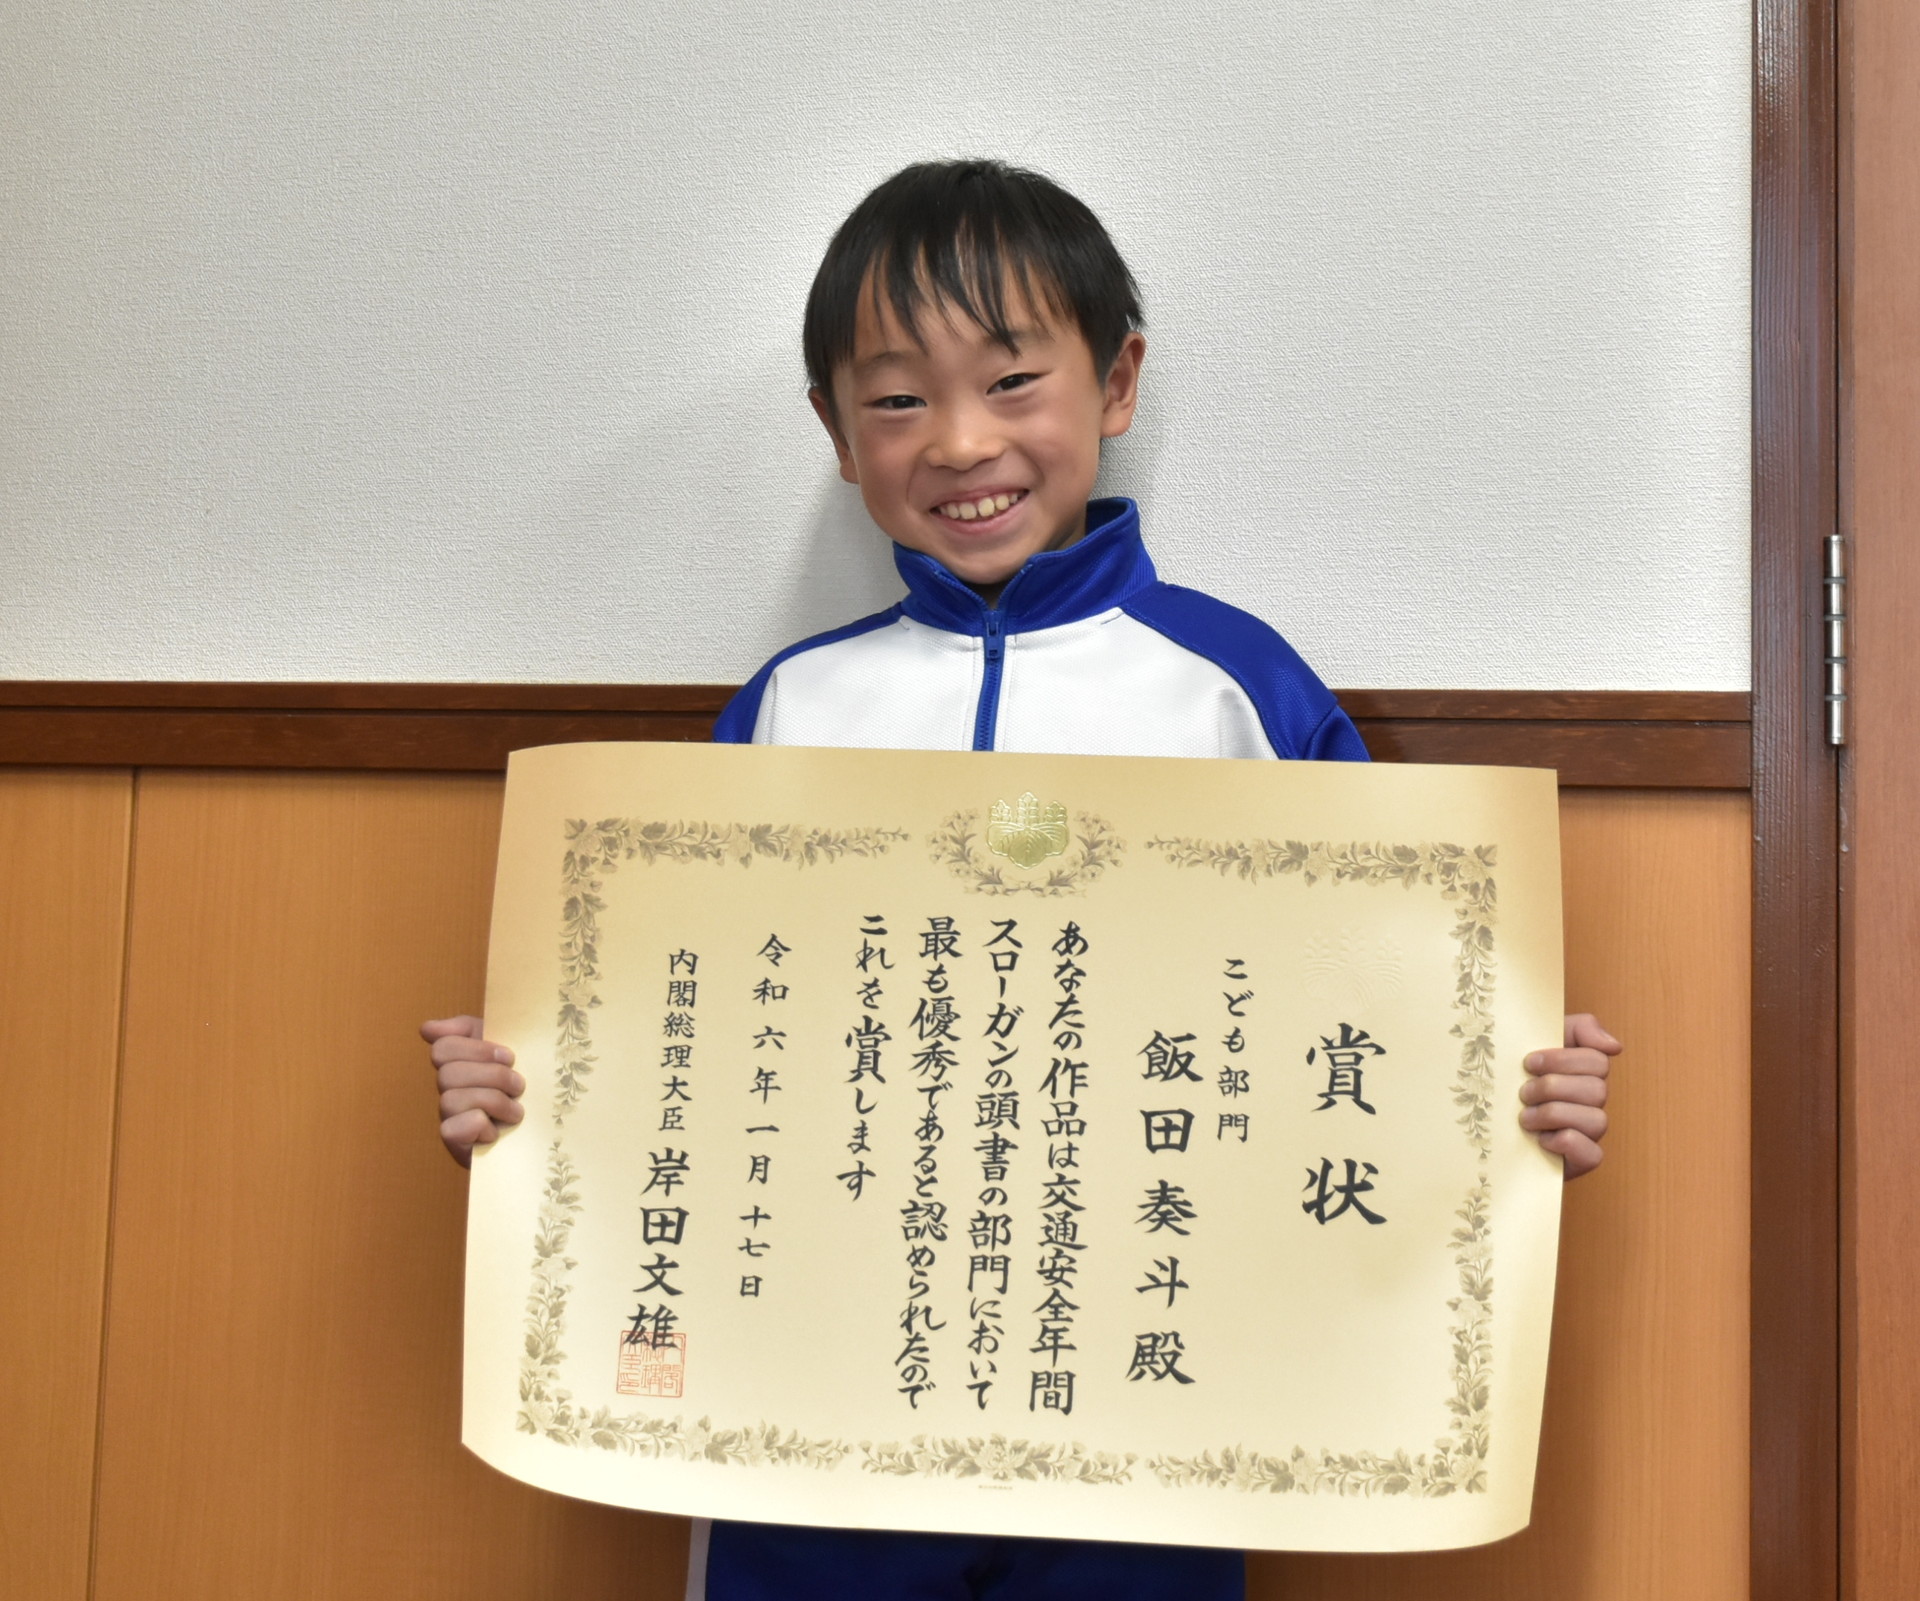 賞状
こども部門
飯田奏斗殿
あなたの作品は交通安全年間
スローガンの頭書の部門において
最も優秀であると認められたので
これを賞します
令和六年一月十七日
内閣総理大臣 岸田文雄